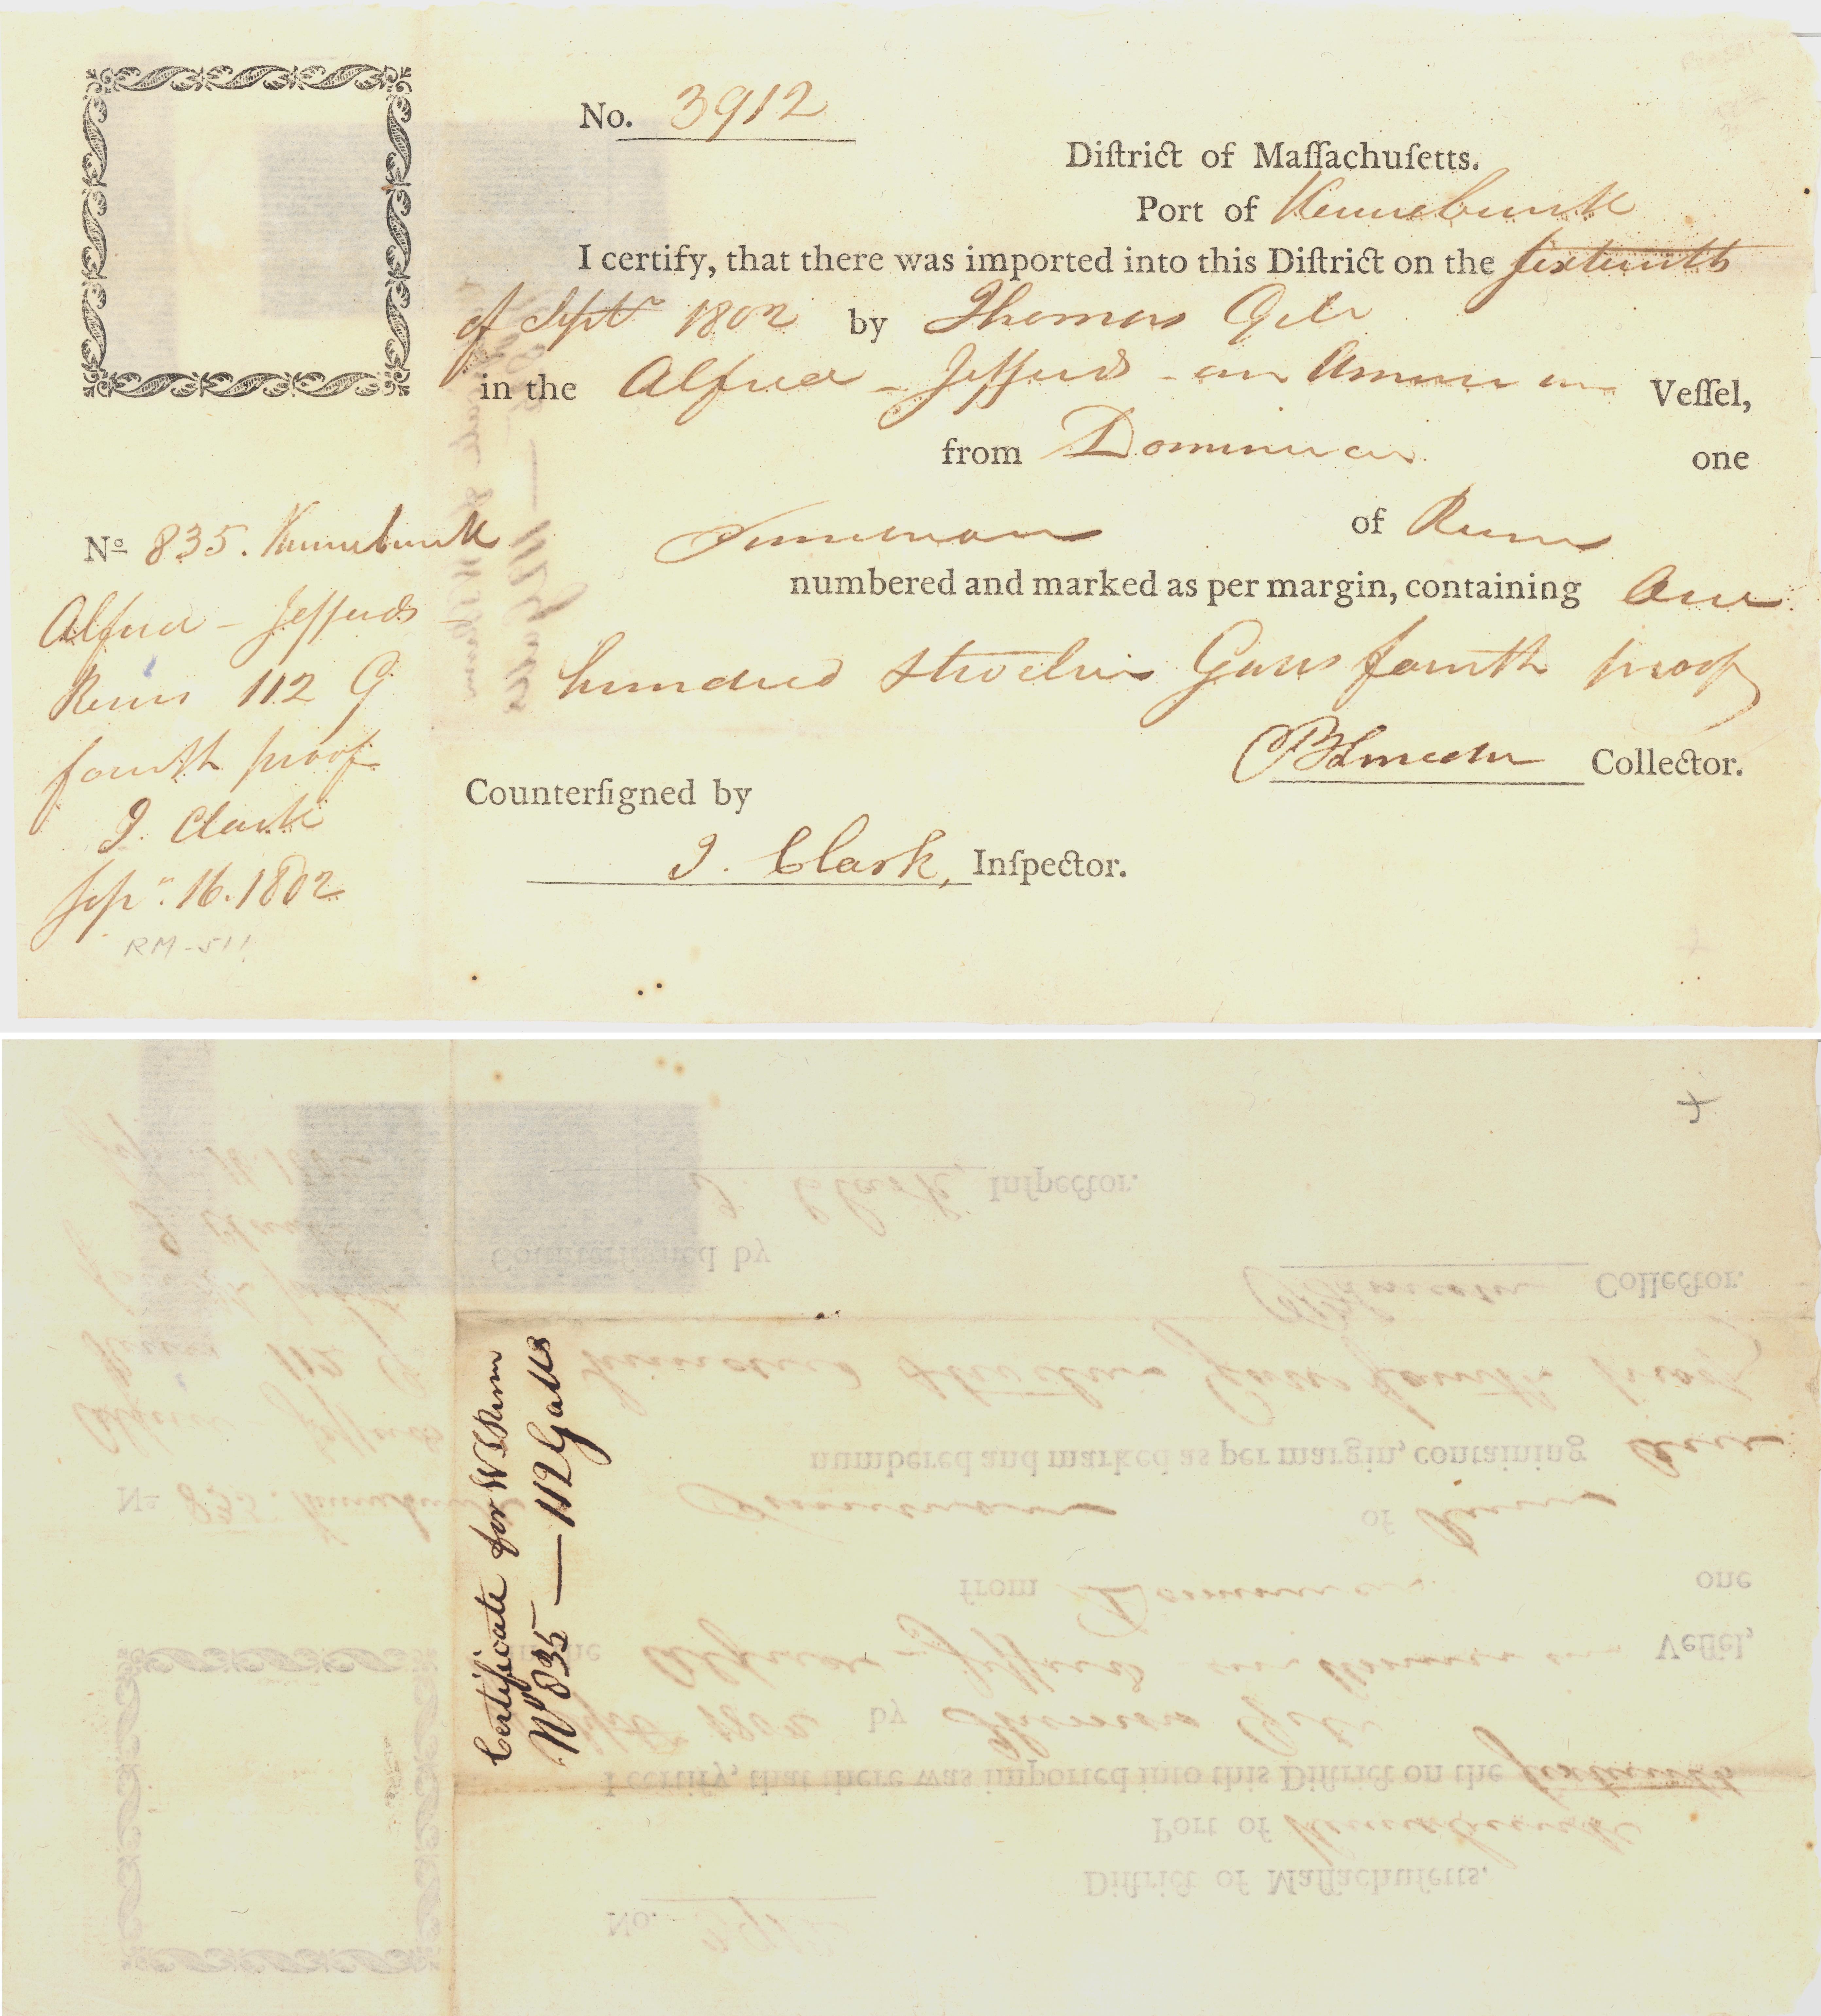 No. 3912
Diſtrict of Maſſachuſetts.
Port of Kennebunk
I certify, that there was imported into this Diſtrict on the ſixteenth
of Sept 1802 by Thomas
in the Alfred - Jefferds - an American Veſſel,
from Dominica one
of Rum
numbered and marked as per margin, containing One
hundred & twelve Galls fourth proof
B Lincoln Collector.
Counterſigned by
J. Clark, Inſpector.
No 835. Kennebunk
Alfred - Jefferds
Rum 112 G
fourth proof
J. Clark
Sepr. 16. 1802
RM-511
Certificate for W I Rum
No 835 — 112 Galls